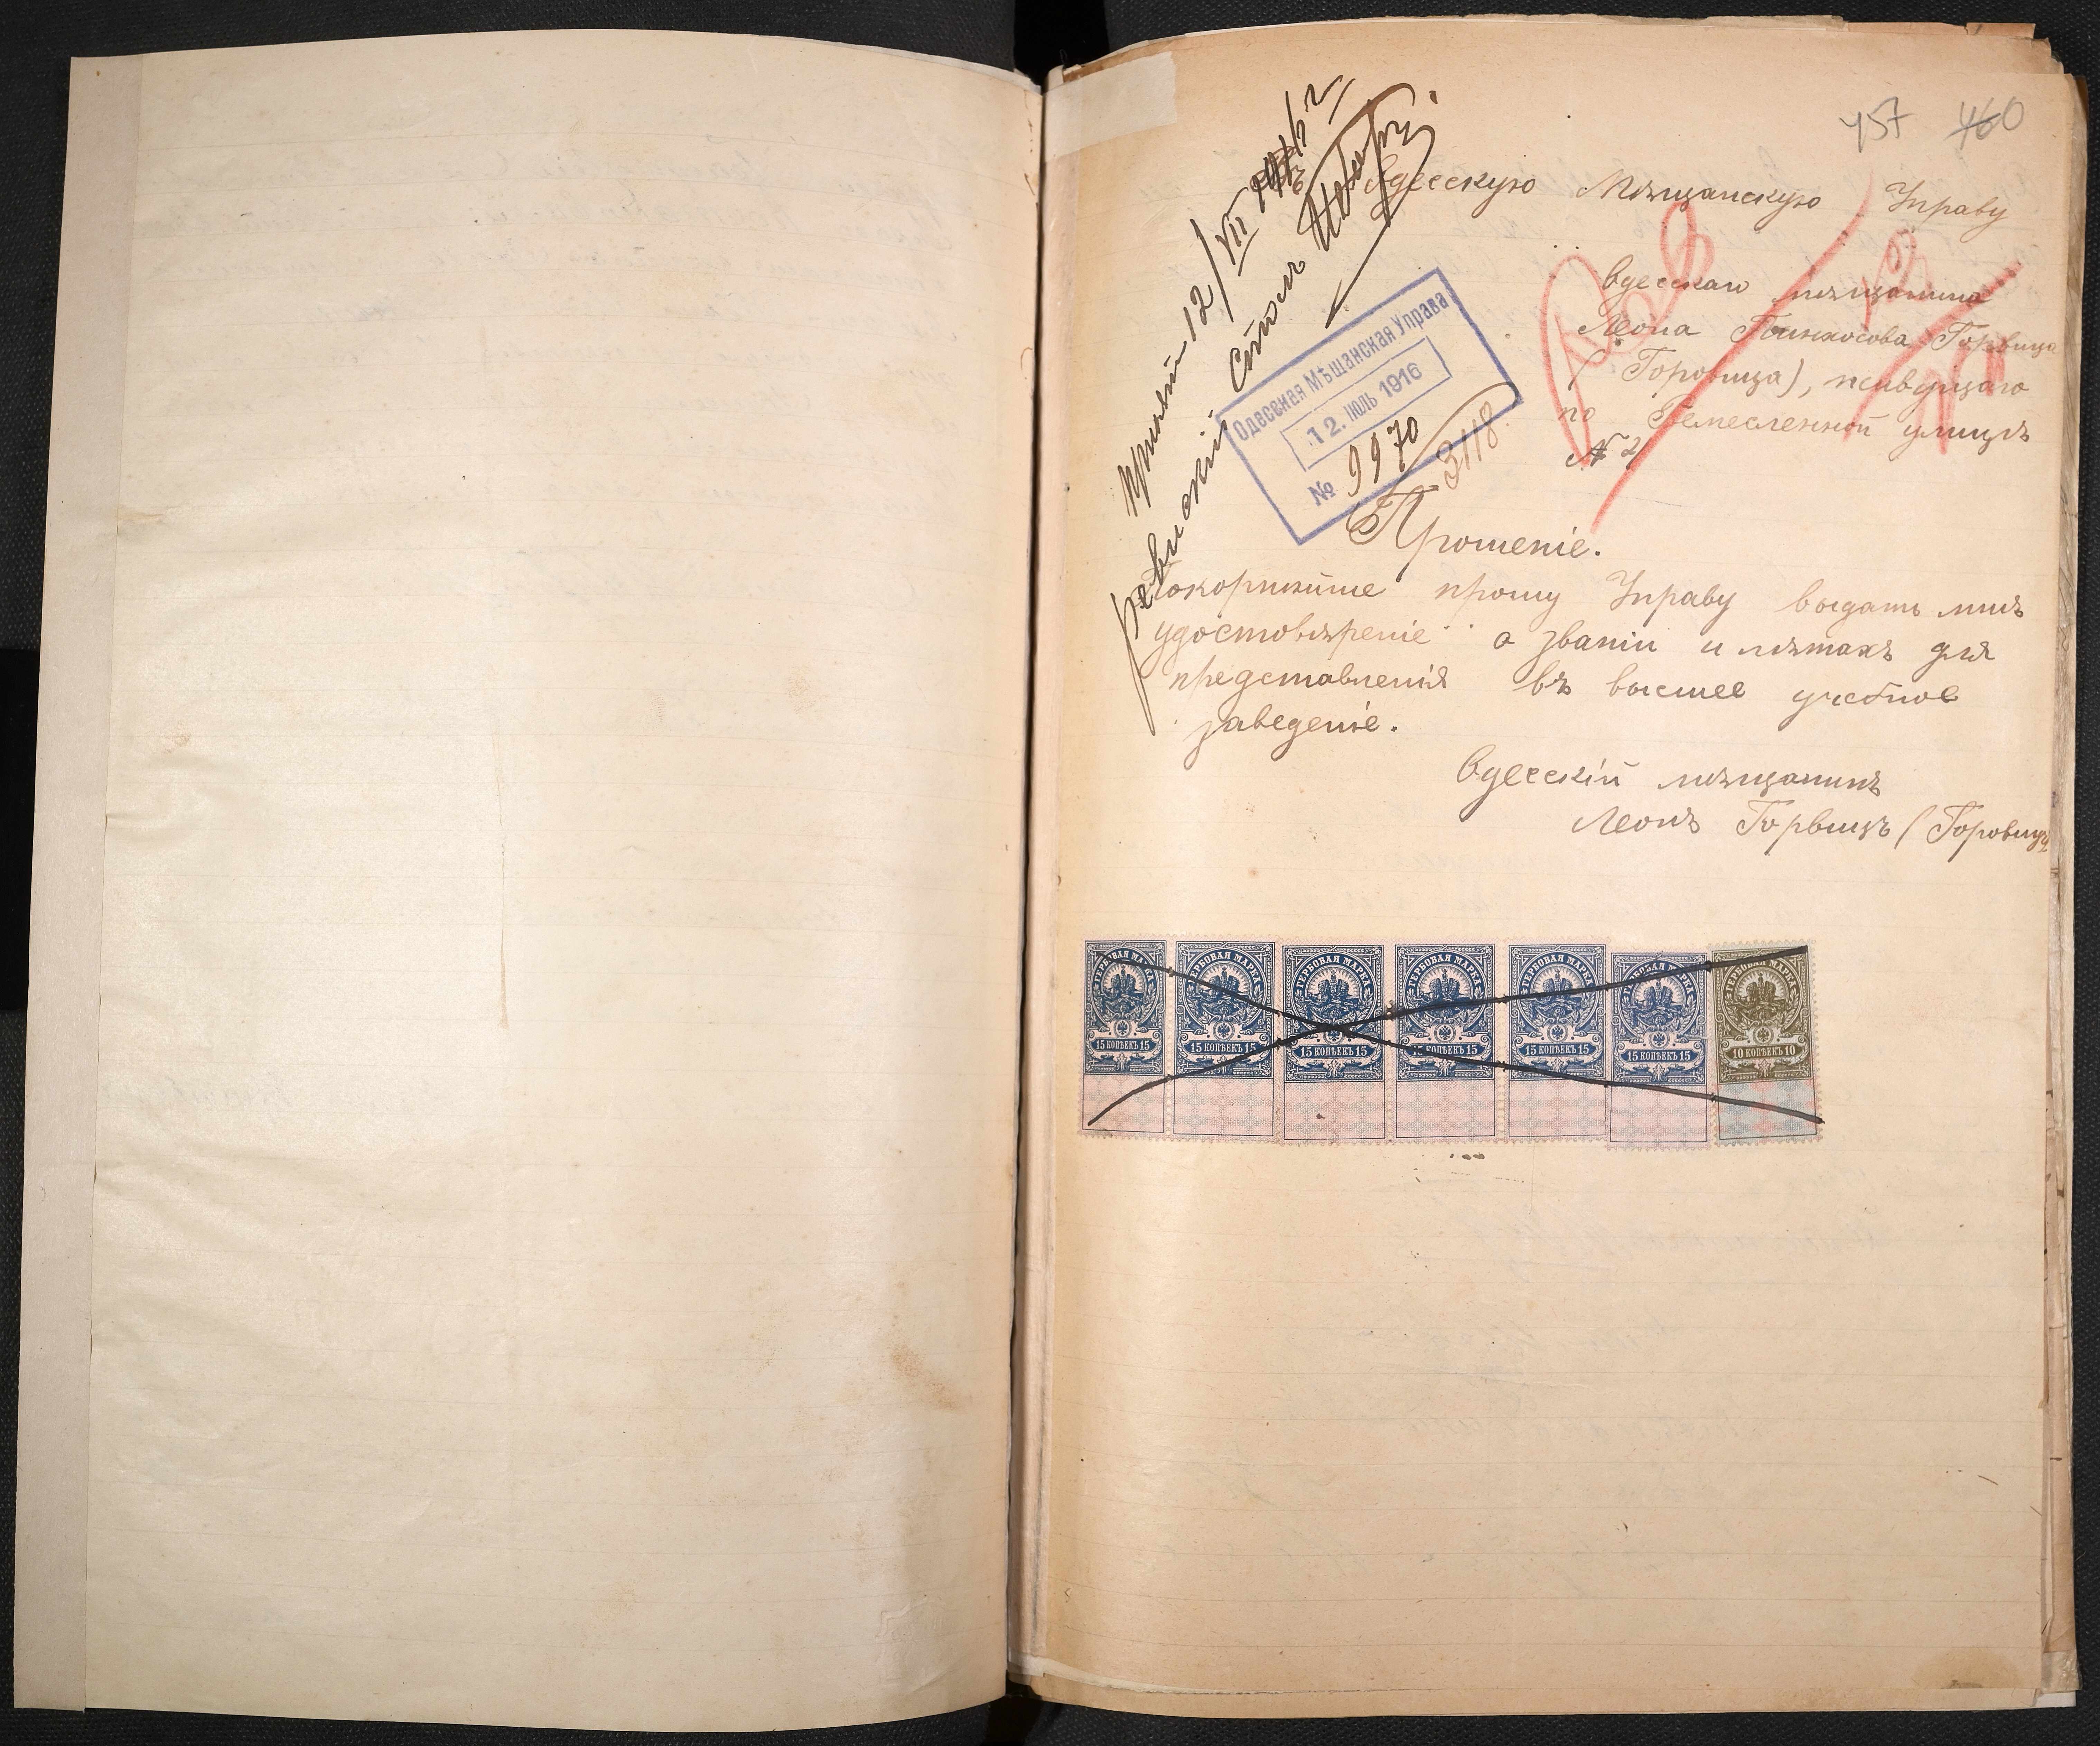 457 460
Въ Одесскую Мѣщанскую Управу
Одесскаго мѣщанина
Леона Пинхосова Горвица
(Горовица), живущаго
по Ремесленной улицѣ
№ 2
12/VII 1916 г
Ревизскій Столъ
Одесская Мѣщанская Управа
12. ІЮЛЬ 1916
№ 9970
3118
Прошеніе.
Покорнѣйше прошу Управу выдать мнѣ
удостовѣреніе о званіи и лѣтахъ для
представленія въ высшее учебное
заведеніе.
Одесскій мѣщанинъ
Леонъ Горвицъ (Горовицъ
ГЕРБОВАЯ МАРКА ГЕРБОВАЯ МАРКА ГЕРБОВАЯ МАРКА ГЕРБОВАЯ МАРКА ГЕРБОВАЯ МАРКА ГЕРБОВАЯ МАРКА ГЕРБОВАЯ МАРКА
15 КОПѢЕКЪ 15 15 КОПѢЕКЪ 15 15 КОПѢЕКЪ 15 15 КОПѢЕКЪ 15 15 КОПѢЕКЪ 15 15 КОПѢЕКЪ 15 10 КОПѢЕКЪ 10